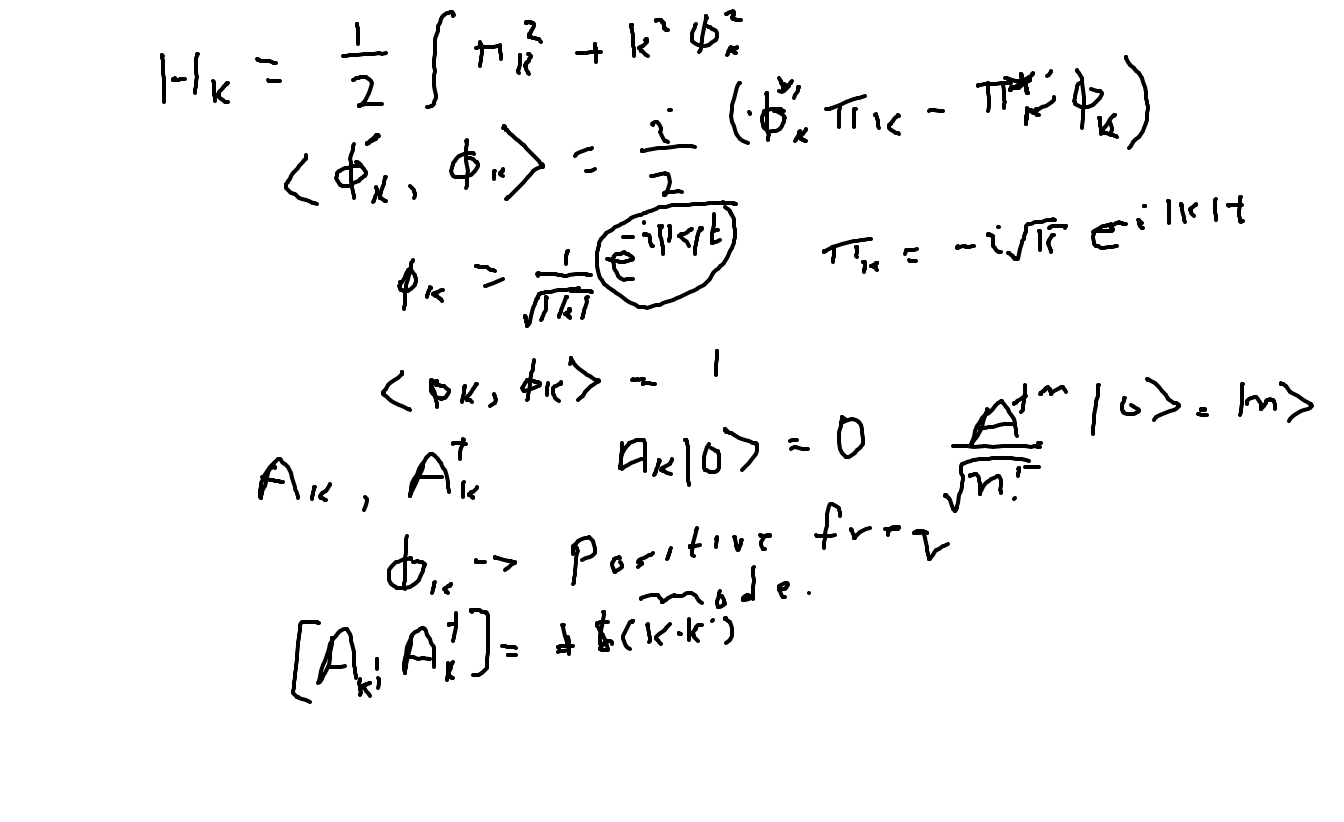 H_k = 1/2 ∫ π_k² + k² φ_k²
<φ'_k, φ_k> = i/2 (φ*'_k π_k - π*'_k φ_k)
φ_k = 1/√|k| e^{-i|k|t}   π_k = -i√k e^{-i|k|t}
<φ_k, φ_k> = 1
A_k, A_k†   A_k|0> = 0   A†ⁿ/√n! |0> = |n>
φ_k -> Positive freq
mode.
[A_k', A_k†] = + δ(k-k')